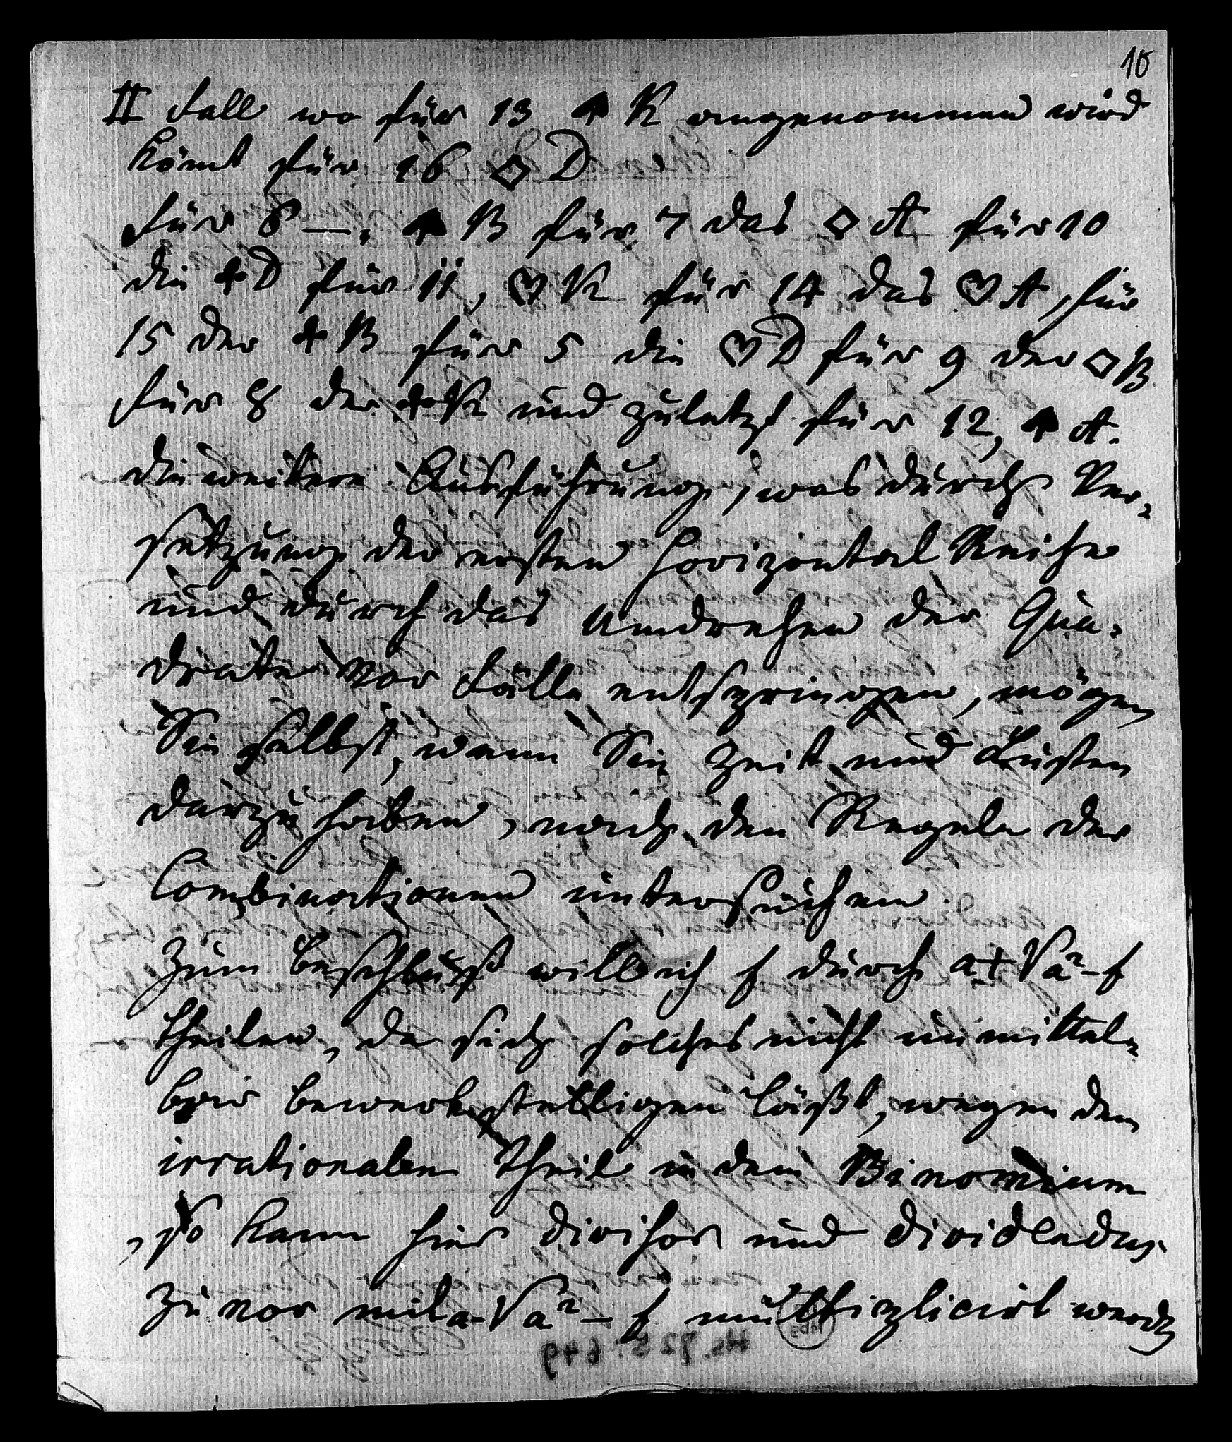 10
II Fall wo für 13 ♠ K angenommen wird
kömt für 16 ◇ D
für 6 —. ♠ B für 7 das ◇ A für 10
die ♣ D für 11, ♡ K für 14 das ♡ A, für
15 der ♣ B für 5 die ♡ D für 9 der ◇ B
für 8 der ♣ K und zuletzt für 12, ♠ A.
die weitere Ausführung, was durch Ver-
setzung der ersten Horizontal Reihe
und durch das Umdrehen der Qua-
drate vor Fälle entspringen, mögen
Sie selbst, wann Sie Zeit und Lusten
darzu haben, nach den Regeln der
Combinationen untersuchen.
Zum Beschluß will ich f durch a+√a²-f
theilen, da sich solches nicht unmittel-
bar bewerkstelligen läßt, wegen dem
irrationalen Theil in dem Binomium
, so kann hier Divisor und Dividendus
zuvor mit a-√a²-f multiplicirt werden
Hs. 725: 649